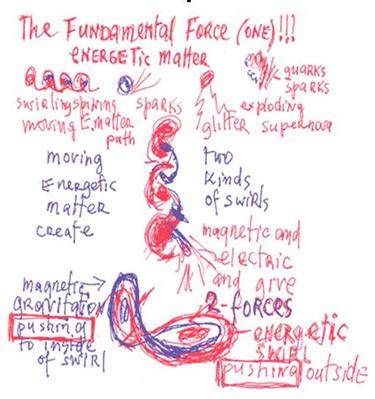 The Fundamental Force (ONE)!!!
ENERGETIC MATTER
quarks
sparks
swirling spining
sparks
exploding
moving E. matter
glitter supernova
path
moving
Energetic
matter
create
two
kinds
of swirls
magnetic and
electric
and give
2 forces
magnetic
GRAVITATION
pushing
to inside
of swirl
energetic
swirl
pushing outside